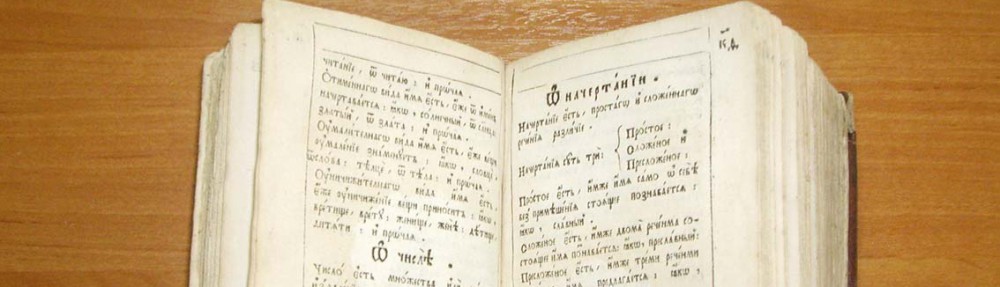 чита́нїе, ѿ чита́ю: и҆ прѡ́чаѧ.
Ѻ҆тыме́ннагѡ ви́да и҆́мѧ є҆́сть, є҆́же ѿ и҆́мене
начертава́етсѧ: ꙗ҆́кѡ со́лнечный, ѿ со́лнца
златы́й, ѿ зла́та: и҆ прѡ́чаѧ.
Оу҆мали́телнагѡ ви́да и҆́мѧ є҆́сть,
оу҆мале́нїе ꙗ҆́кѡ
ѿ сло́ва: тѣ́лце, ѿ тѣ́ла: и҆ прѡ́чаѧ.
Оу҆ничижи́телнагѡ ви́да и҆́мѧ є҆́сть,
є҆́же оу҆ничиже́нїе ве́щи прино́ситъ: ꙗ҆́кѡ,
жени́ще, жена̀: дѣ́тище,
и҆ прѡ́чаѧ.
Ѿ числѣ̀.
Число̀ є҆́сть мно́жества
к҃д
Ѿ начерта́нїи.
Начерта́нїе є҆́сть, проста́гѡ и҆ сложе́ннагѡ
рече́нїѧ разли́чїе.
Начерта́нїѧ сꙋ́ть трѝ:
Просто́е:
Сложе́ное и҆
Пресложе́ное:
Просто́е є҆́сть, и҆́мже и҆́мѧ само̀ ѡ҆ себѣ̀
без̾ примѣше́нїѧ стоѧ́щее познава́етсѧ:
ꙗ҆́кѡ, сла́вный.
Сложе́ное є҆́сть, и҆́мже двома̀ рече́нїма со-
стоѧ́щее и҆́мѧ познава́етсѧ: ꙗ҆́кѡ, пресла́вный:
Пресложе́ное є҆́сть, и҆́мже тремѝ рече́нїми
предлага́етсѧ: ꙗ҆́кѡ,